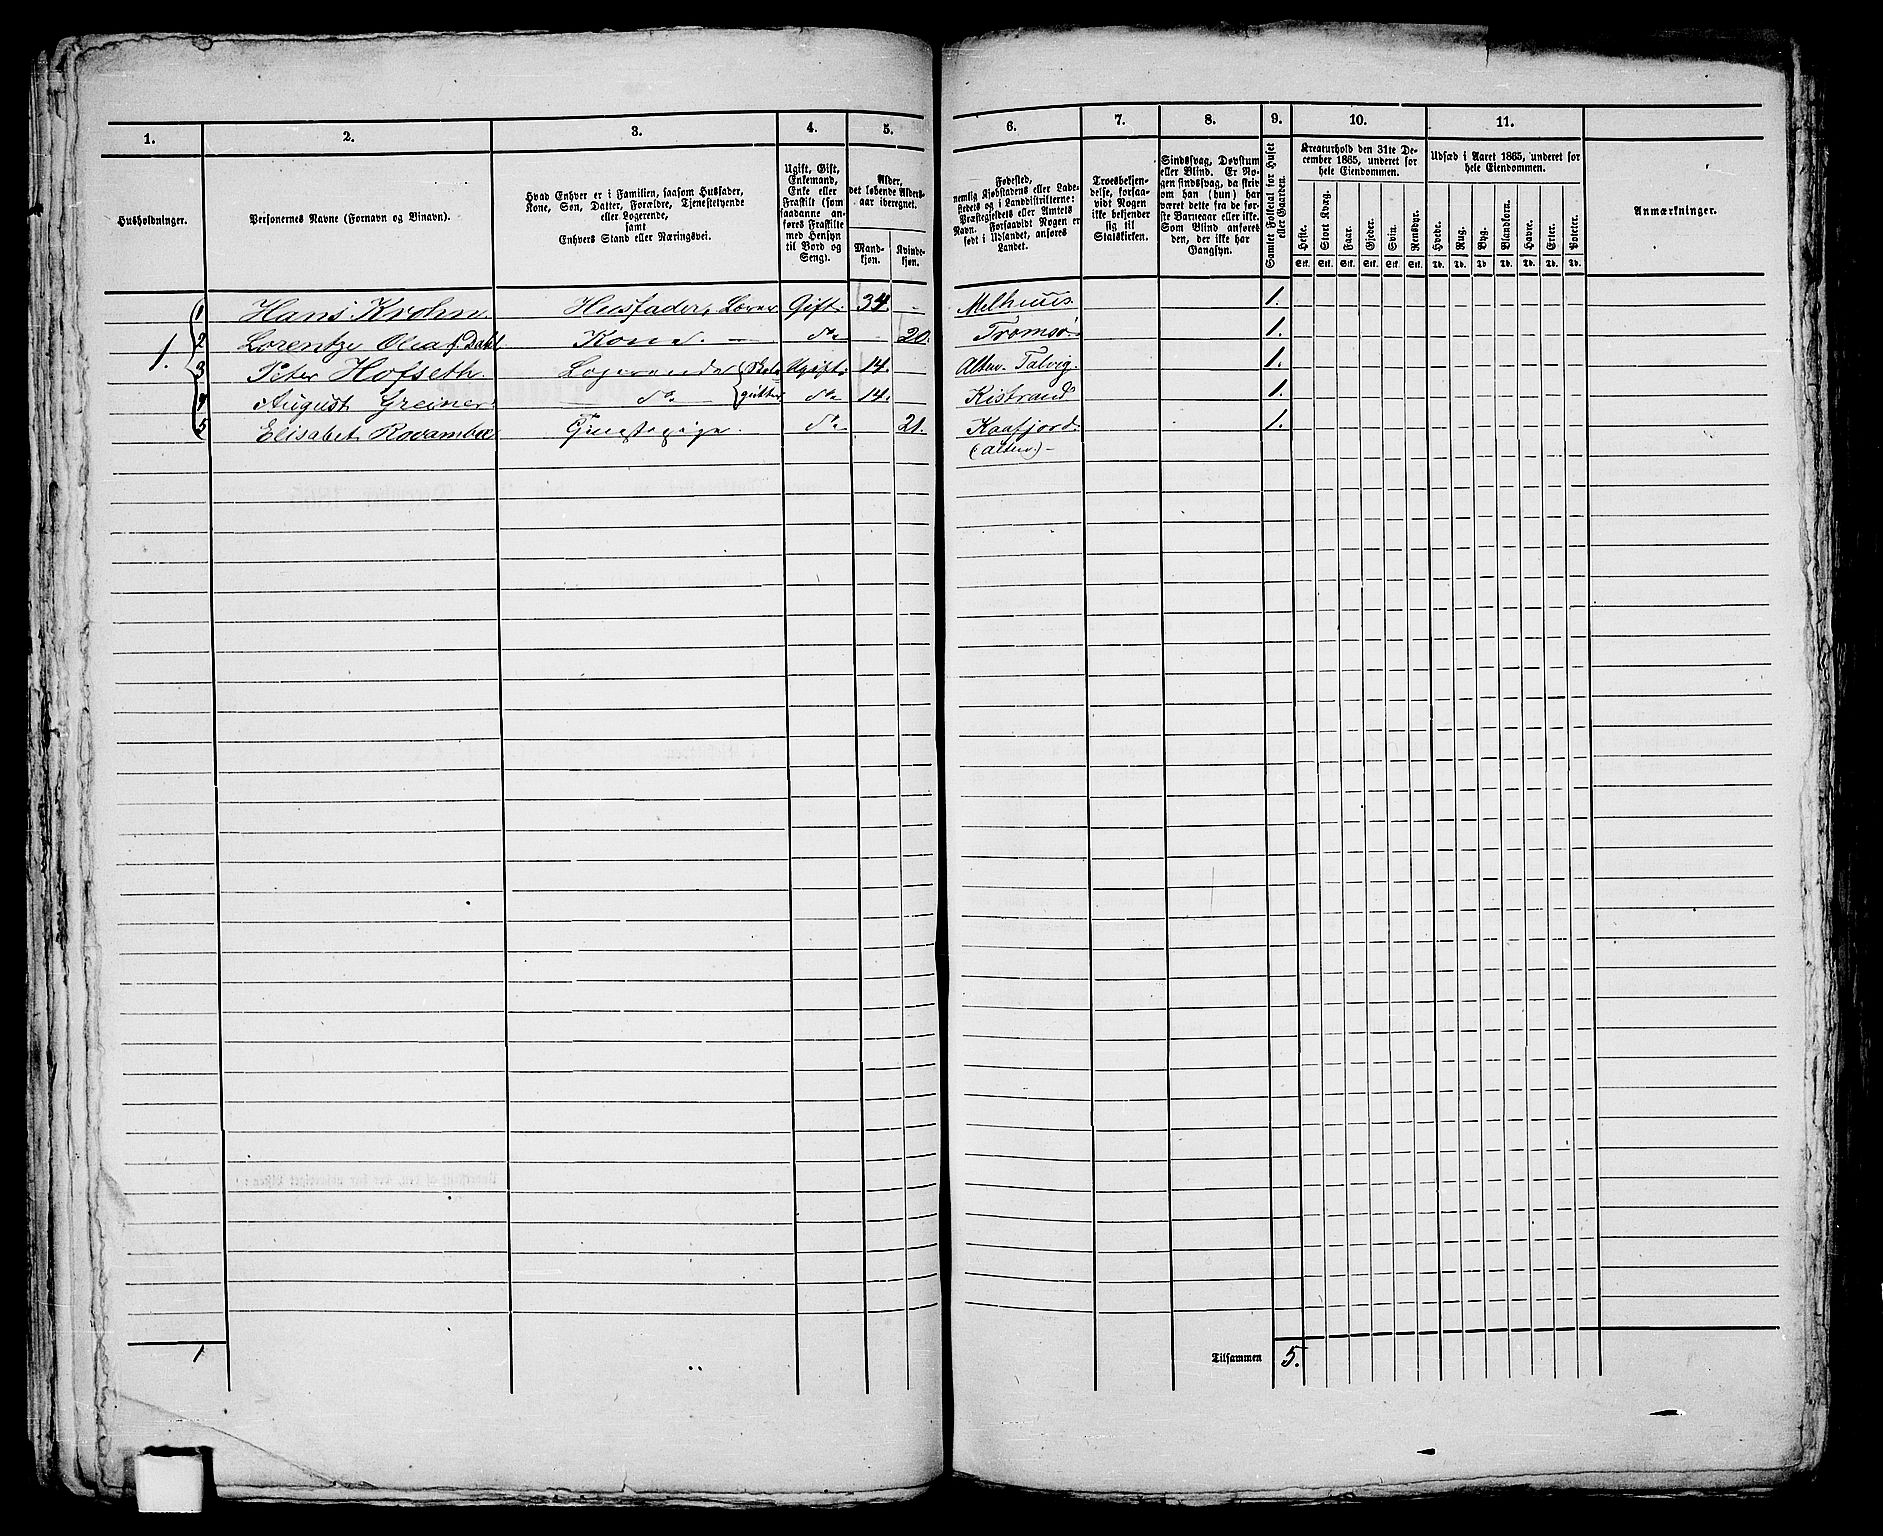 1. 2. 3. 4. 5. 6. 7. 8. 9. 10. 11.
Husholdninger.
Personernes Navne (Fornavn og Vinavn).
Hvad Enhver er i Familien, saasom Husfader,
Kone, Søn, Datter, Forældre, Tjenestetyende
eller Logerende,
samt
Enhvers Stand eller Næringsvei.
Ugift, Gift,
Enkemand,
Enke eller
Fraskilt (som
saadanne an-
føres Fraskilte
med Hensyn
til Bord og
Seng).
Alder,
det løbende Alders-
aar iberegnet.
Mand-
kjøn.
Kvinde-
kjøn.
Fødested,
nemlig Kjøbstadens eller Lade-
stedets og i Landdistrikterne:
Præstegjeldets eller Amtets
Navn. Forsaavidt Nogen er
født i Udlandet, anføres
Landet.
Troesbekjen-
delse, forsaa-
vidt Nogen
ikke bekjender
sig til
Statskirken.
Sindssvag, Døvstum
eller Blind. Er No-
gen sindssvag, da skriv
om han (hun) har
været dette fra de før-
ste Barneaar eller ikke.
Som Blind anføres
den, der ikke har
Gangsyn.
Samlet Folketal for Huset
eller Gaarden.
Kreaturhold den 31te De-
cember 1865, underet for
hele Eiendommen.
Heste. Stort Kvæg. Faar. Gjeder. Svin. Rensdyr.
Stk. Stk. Stk. Stk. Stk. Stk.
Udsæd i Aaret 1865, underet for
hele Eiendommen.
Hvede. Rug. Byg. Blandkorn. Havre. Erter. Poteter.
Td. Td. Td. Td. Td. Td. Td.
Anmærkninger.
1 Hans Krohn Husfader, Lærer Gift. 34. – Melhuus. 1.
1. 2 Lorentze Olea f Dahl Kone. – do – 20. Tromsø 1.
3 Peter Hofseth. Logerende Skole Ugift. 14. – Alten-Talvig. 1.
4 August Greiner. – do – gutter do 14. – Kistrand 1.
5 Elisabet Rovambæ Tjenestepige. do 21. Kaafjord. 1.
(Alten.) –
1 Tilsammen 5.